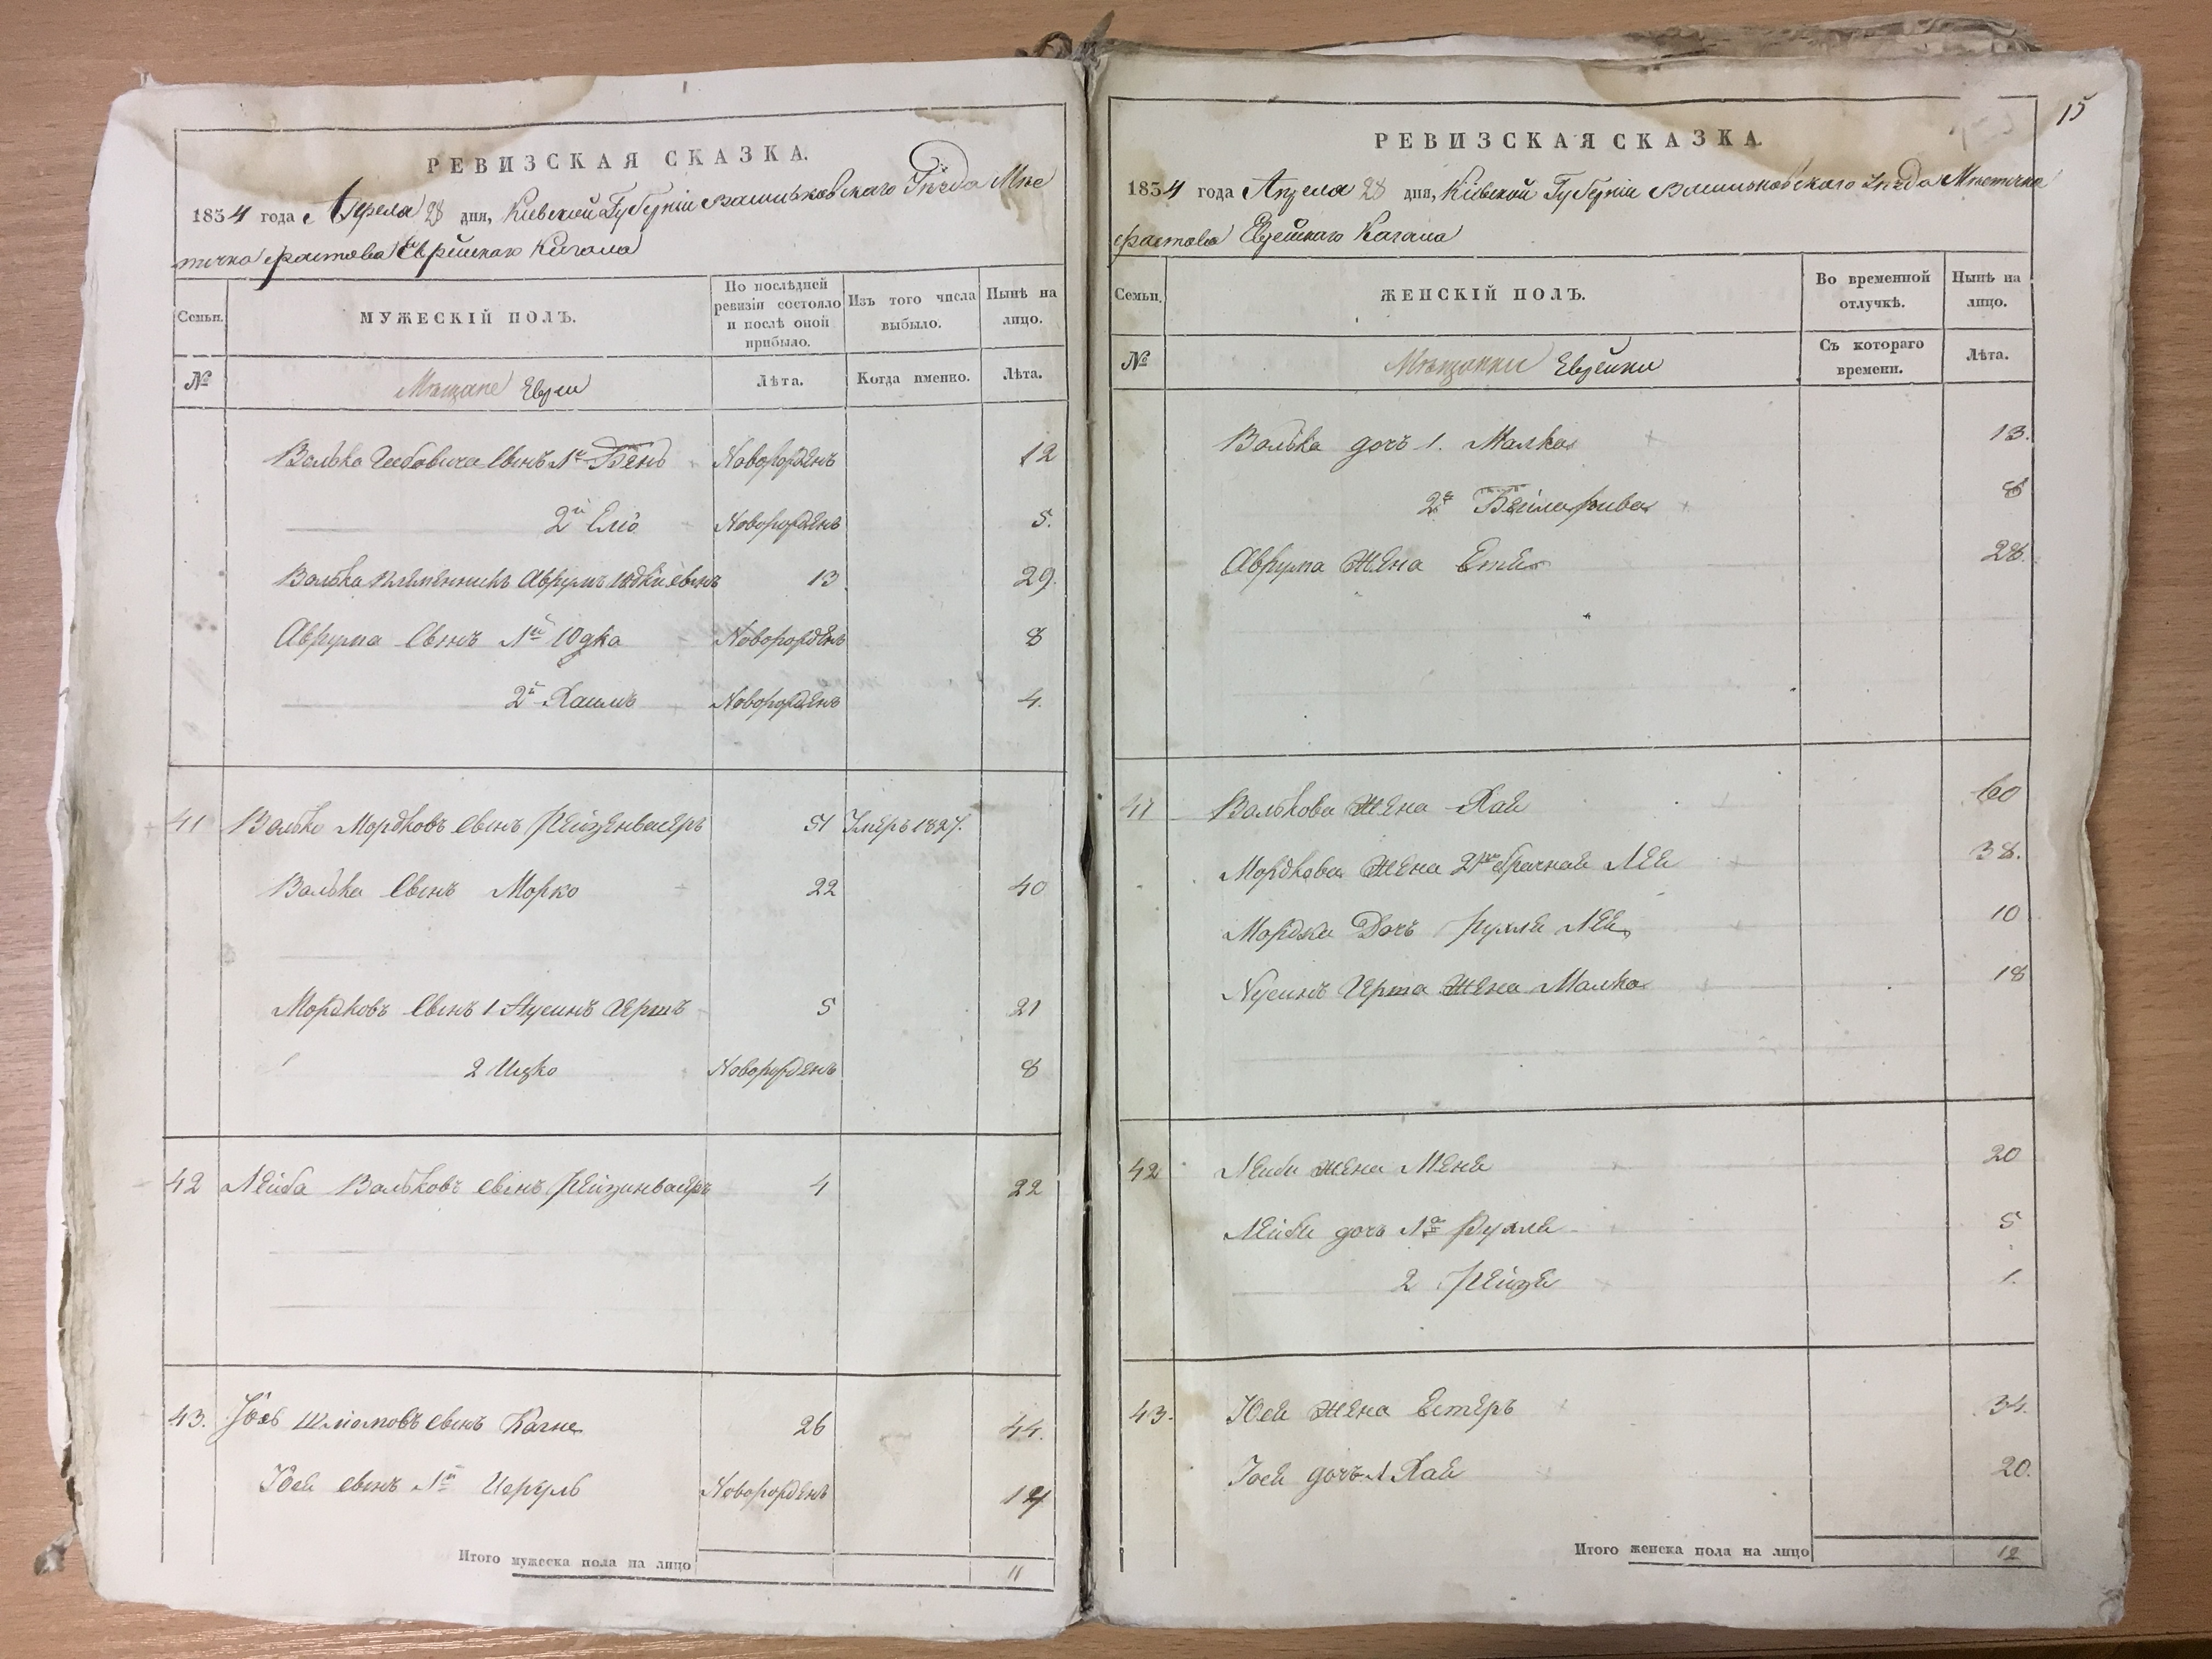 РЕВИЗСКАЯ СКАЗКА.
1834 года Апреля 28 дня, Кіевской Губерніи Васильковскаго Уѣзда Мѣс
течка Фастова Еврейскаго Кагала
Семьи.
МУЖЕСКІЙ ПОЛЪ.
По послѣдней ревизіи состояло и послѣ оной прибыло.
Изъ того числа выбыло.
Нынѣ на лицо.
№
Мѣщане Евреи
Лѣта.
Когда именно.
Лѣта.
Волька сынъ 1й Бенъ Новорожденъ 12
2й Еліо Новорожденъ 5.
Волька племенникъ Аврумъ Юдки сынъ 13 29.
Аврума сынъ 1й Юдка Новорожденъ 8
2й Хаимъ Новорожденъ 4.
41 Волько Мордковъ сынъ Рейзенвасеръ 51 Умеръ 1827.
Волька сынъ Морко 22 40
Мордковъ сынъ 1 Нусинъ Гершъ 5 21
2 Ицко Новорожденъ 8
42 Лейба Вольковъ сынъ Рейзинвасеръ 4 22
43. Іось сынъ 26 44.
Іося сынъ 1й Новорожденъ 14
Итого мужеска пола на лицо 11
15
РЕВИЗСКАЯ СКАЗКА.
1834 года Апреля 28 дня, Кіевской Губерніи Васильковскаго Уѣзда Мѣстечка
Фастова Еврейскаго Кагала
Семьи.
ЖЕНСКІЙ ПОЛЪ.
Во временной отлучкѣ.
Нынѣ на лицо.
№
Мѣщанки Еврейки
Съ котораго времени.
Лѣта.
Волька дочь 1. Малка 13.
2я Бейла рива 8
Аврума жена Етя 28.
41 Волькова жена Хая 60
Мордкова жена 2го брачная Лея 38.
Мордки дочь Рухля Лея 10
Нусинъ Герша жена Малка 18
42 Лейби жена Меня 20
Лейби дочь 1я Рухля 5
2 Рейзя 1.
43. Іося жена Естеръ 34.
Іося дочь 1 Хая 20.
Итого женска пола на лицо 12